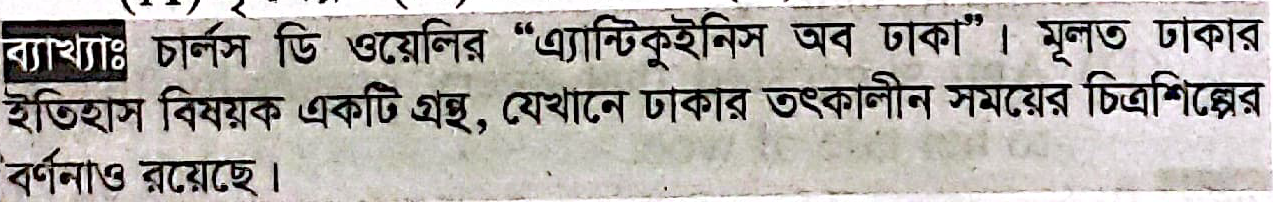 ব্যাখ্যাঃ চার্লস ডি ওয়েলির “এ্যান্টিকুইনিস অব ঢাকা”। মূলত ঢাকার
ইতিহাস বিষয়ক একটি গ্রন্থ, যেখানে ঢাকার তৎকালীন সময়ের চিত্রশিল্পের
বর্ণনাও রয়েছে।